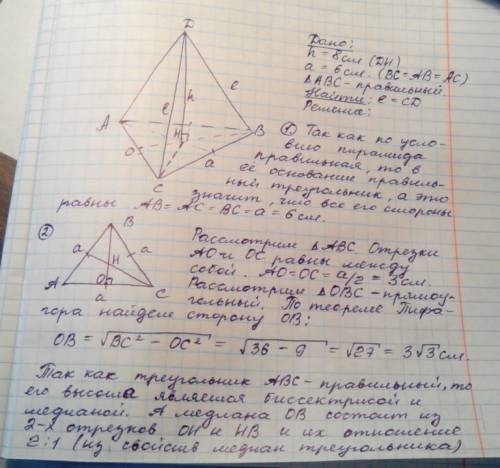 D
Дано:
h = 8 см (DH)
a = 6 см. (BC = AB = AC)
△ABC - правильный
Найти: ℓ = CD
Решение:
h
ℓ
ℓ
A
B
O
H
a
C
① Так как по усло-
вию пирамида
правильная, то в
её основание правиль-
ный треугольник, а это
значит, что все его стороны
равны AB = AC = BC = a = 6 см.
②
B
a
H
a
A
O
C
a
Рассмотрим △ABC. Отрезки
AO и OC равны между
собой. AO = OC = a/2 = 3 см.
Рассмотрим △OBC - прямоу-
гольный. По теореме Пифа-
гора найдем сторону OB:
OB = √BC² - OC² = √36 - 9 = √27 = 3√3 см.
Так как треугольник ABC - правильный, то
его высота является биссектрисой и
медианой. А медиана OB состоит из
2-х отрезков OH и HB и их отношение
2:1 (из свойств медиан треугольника)